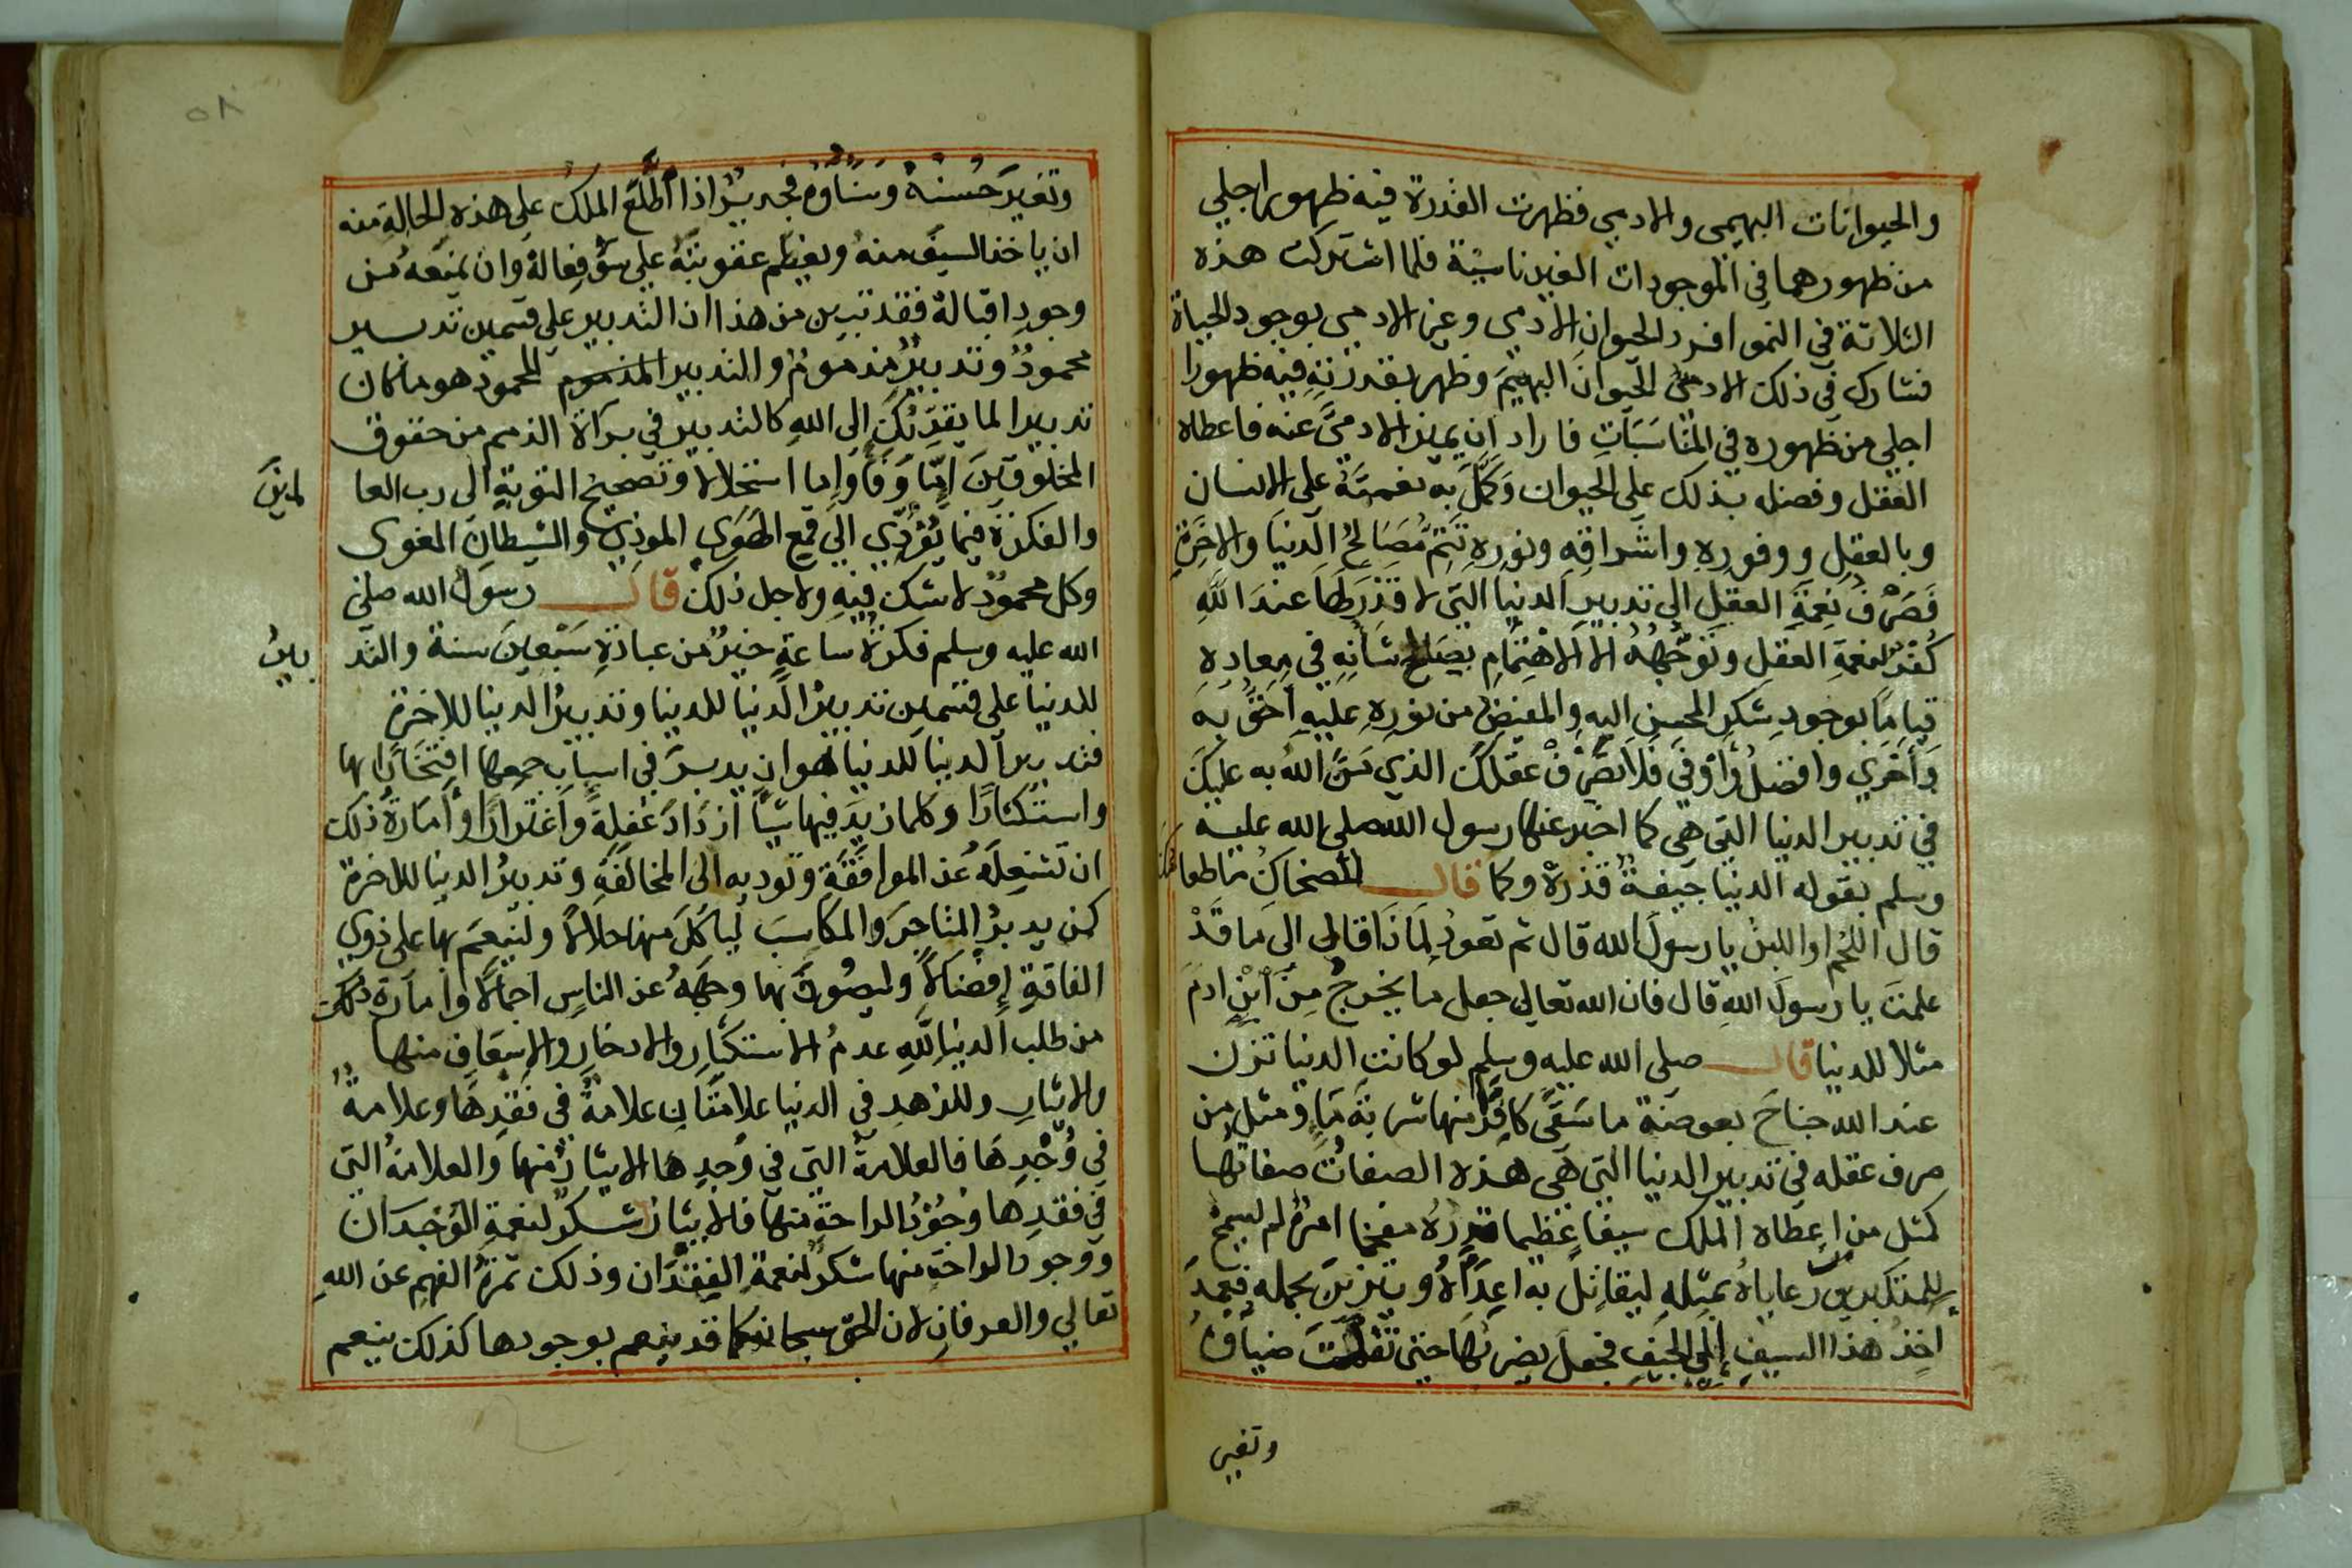 والحيوانات البهيمي والادمي فظهرت القدرة فيه ظهورا اجلي
من ظهورهما في الموجودات الغير ناسية فلما اشتركت هذه
الثلاثة في النمو افرد الحيوان الادمي وغير الادمي بوجود الحياة
فشارك في ذلك الادمي الحيوان البهيم وظهر بقدرته فيه ظهورا
اجلي من ظهوره في المناسبات فاراد ان يميز الادمي عنه فاعطاه
العقل وفضله بذلك على الحيوان وكمل به نعمته على الانسان
وبالعقل ووفوره واشراقه ونوره تتم مصالح الدنيا والاخرة
فصرف نعمة العقل الى تدبير الدنيا التي لا قدر لها عند الله
كفر لنعمة العقل وتوجهه الا الاهتمام بصالح شانه في معاده
قياما بوجود شكر المحسن اليه والمفيض من نوره عليه احق به
واحري وافضل واوفى فلا تصرف عقلك الذي من الله به عليك
في تدبير الدنيا التي هي كما اخبر عنها رسول الله صلى الله عليه
وسلم بقوله الدنيا جيفة قذرة وكما قال للضحاك ما طعامك
قال اللحم واللبن يا رسول الله قال ثم تعود لماذا قال الى ما قد
علمت يا رسول الله قال فان الله تعالى جعل ما يخرج من ابن ادم
مثلا للدنيا قال صلى الله عليه وسلم لو كانت الدنيا تزن
عند الله جناح بعوضة ما سقى كافرا منها شربة ماء ومثل من
صرف عقله في تدبير الدنيا التي هي هذه الصفات صفاتها
كمثل من اعطاه الملك سيفا عظيما قدره مفخما امره لم يسمح
للمتكبرين رعاياه بمثله ليقاتل به اعداه ويتزين بحمله فعمد
اخذ هذا السيف الى الجيف فجعل يضربها حتى تفلت ضيافه
وتغير
٥٨
وتغير حسنه وسناؤه فجدير اذا اطلع الملك على هذه الحالة منه
ان ياخذ السيف منه ويعظم عقوبته على سؤ فعاله وان يمنعه من
وجود اقباله فقد تبين من هذا ان التدبير على قسمين تدبير
محمود وتدبير مذموم والتدبير المذموم المحمود هو ما كان
تدبيرا لما يقربك الى الله كالتدبير في براة الذمم من حقوق
المخلوقين اما وفا واما استحلالا وتصحيح التوبة الى رب العا لمين
والفكرة فيما يؤدي الى قمع الهوى الموذي والشيطان المغوى
وكل محمود لا شك فيه ولاجل ذلك قال رسول الله صلى
الله عليه وسلم فكرة ساعة خير من عبادة سبعين سنة والتد بير
للدنيا على قسمين تدبير الدنيا للدنيا وتدبير الدنيا للاخرة
فتدبير الدنيا للدنيا هو ان يدبر في اسباب جمعها افتخارا بها
واستكثارا وكلما زيد فيها شيا ازداد غفلة واغترارا وامارة ذلك
ان تشغله عن الموافقة وتوديه الى المخالفة وتدبير الدنيا للاخرة
كمن يدبر المتاجر والمكاسب لياكل منها حلالا ولينعم بها على ذوي
الفاقة افضالا وليصون بها وجهه عن الناس اجمالا وامارة ذلك
من طلب الدنيا لله عدم الاستكبار والادخار والاسعاف منها
والايثار وللزهد في الدنيا علامتان علامة في فقدها وعلامة
في وجدها فالعلامة التي في وجدها الايثار منها والعلامة التي
في فقدها وجود الراحة منها فالايثار شكر لنعمة الوجدان
ووجود الراحة منها شكر لنعمة الفقدان وذلك ثمرة الفهم عن الله
تعالي والعرفان لان الحق سبحانه كما قد ينعم بوجودها كذلك ينعم